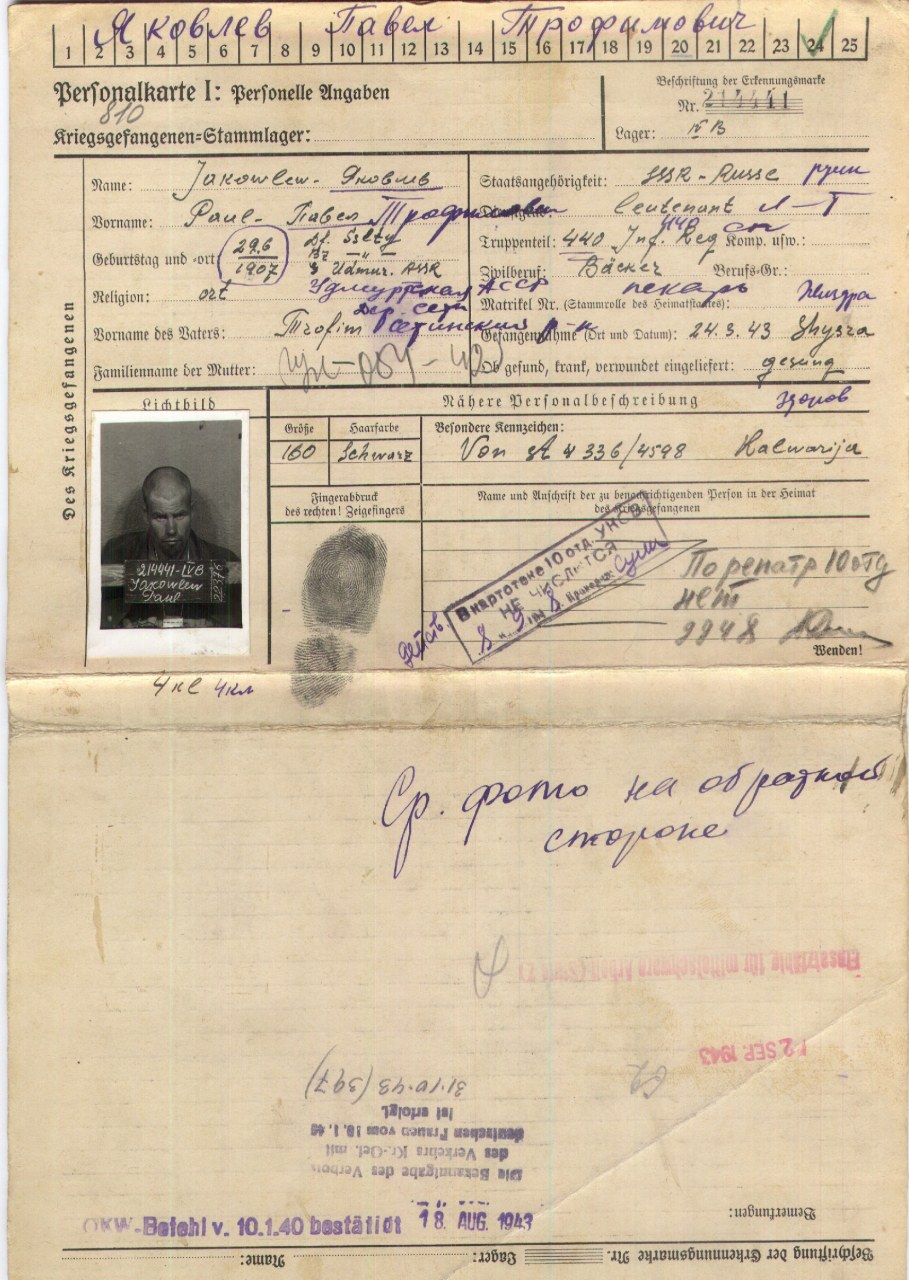 Яковлев Павел Трофимович
1 2 3 4 5 6 7 8 9 10 11 12 13 14 15 16 17 18 19 20 21 22 23 24 25
Personalkarte I: Personelle Angaben
810
Kriegsgefangenen-Stammlager:
Beschriftung der Erkennungsmarke
Nr. 214441
Lager: IV B
Des Kriegsgefangenen
Name: Jakowlew - Яковлев
Vorname: Paul - Павел Трофимович
Geburtstag und -ort 29.6 1907
Udmur. ASSR
Удмуртская АССР
Religion: ort
Дер. Сети
Vorname des Vaters: Trofim
Familienname der Mutter:
Staatsangehörigkeit: SSR - Russe
leutenant Л-Т
Truppenteil: 440 Inf. Reg Komp. usw.: 440 сп
Zivilberuf: Bäcker Berufs-Gr.:
пекарь
Matrikel Nr. (Stammrolle des Heimatstaates): Жиздра
Gefangennahme (Ort und Datum): 24.3.43
Ob gesund, krank, verwundet eingeliefert: gesund
здоров
Lichtbild
214441-IVB
Jakowlew
Paul
Nähere Personalbeschreibung
Größe Haarfarbe Besondere Kennzeichen:
160 Schwarz Von St. 336/4598 Kalwarija
Fingerabdruck
des rechten! Zeigefingers
Name und Anschrift der zu benachrichtigenden Person in der Heimat
des Kriegsgefangenen
В картотеке 10 отд. УНСВ
НЕ ЧИСЛИТСЯ
По репатр 10 отд
нет
Wenden!
4 kl 4 кл
Ср. фото на обратной
стороне
Einsatzfähig für mittelschwere Arbeit
2 SEP. 1943
31.10.43 (397)
Die Bekanntgabe des Verbots
des Verkehrs Kr.-Gef. mit
deutschen Frauen vom
ist erfolgt
OKW-Befehl v. 10.1.40 bestätigt 18. AUG. 1943
Bemerkungen:
Beschriftung der Erkennungsmarke Nr. Lager: Name: